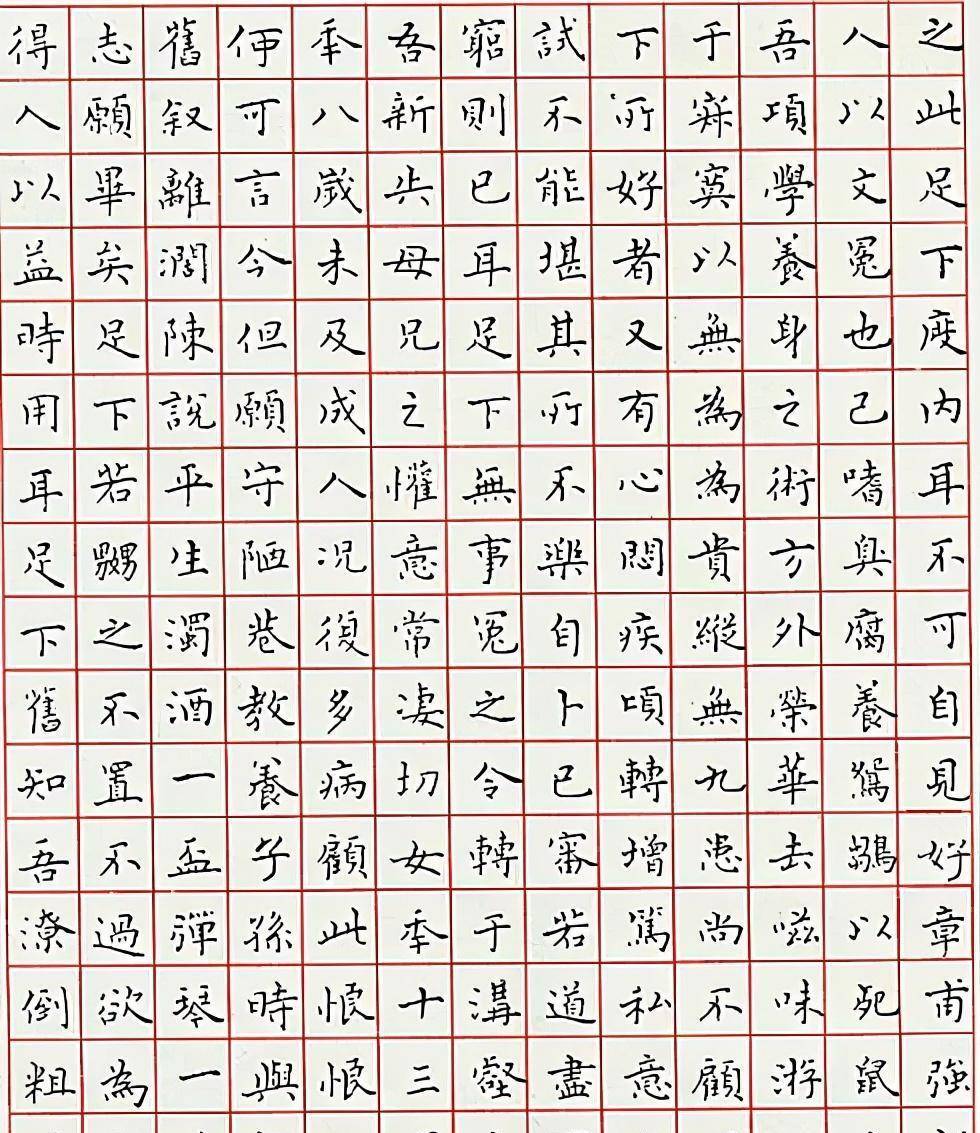 之此足下度内耳不可自見好章甫強
人以文冕也己嗜臭腐養鴛鶵以死鼠
吾頃學養身之術方外榮華去滋味游
于寂寞以無為為貴縱無九患尚不顧
下所好者又有心悶疾頃轉增篤私意
試不能堪其所不樂自卜已審若道盡
窮則已耳足下無事冤之令轉于溝壑
吾新失母兄之懽意常凄切女年十三
年八歲未及成人況復多病顧此悢悢
何可言今但願守陋巷教養子孫時與
舊叙離濶陳說平生濁酒一盃彈琴一
志願畢矣足下若嬲之不置不過欲為
得人以益時用耳足下舊知吾潦倒粗